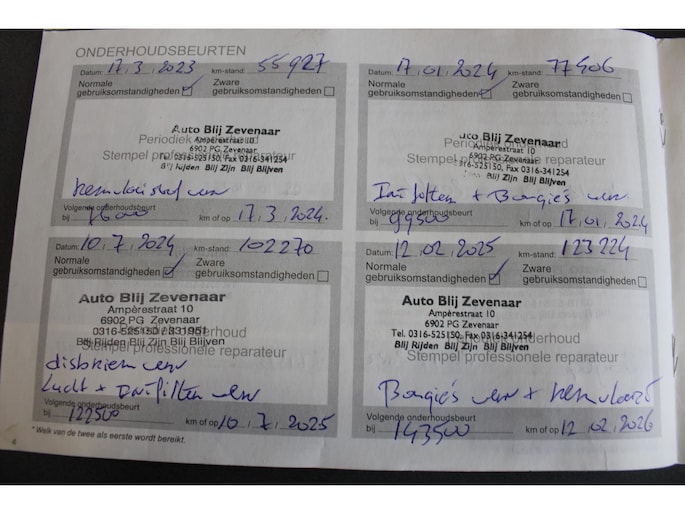 ONDERHOUDSBEURTEN
Datum: 17.3.2023 km-stand: 55927
Normale gebruiksomstandigheden
Zware gebruiksomstandigheden
Periodiek
Auto Blij Zevenaar
Ampèrestraat 10
6902 PG Zevenaar
Stempel professionele reparateur
0316-525150, Fax 0316-341254
Blij Rijden Blij Zijn Blij Blijven
Volgende onderhoudsbeurt
bij km of op 17.3.2024.
Datum: 17.01.2024 km-stand: 77406
Normale gebruiksomstandigheden
Zware gebruiksomstandigheden
Periodiek
Blij Zevenaar
Ampèrestraat 10
6902 PG Zevenaar
Stempel professionele reparateur
525150, Fax 0316-341254
Blij Zijn Blij Blijven
+ Bougie's
Volgende onderhoudsbeurt
bij 99500 km of op 17.01.2024
Datum: 10.7.2024 km-stand: 102270
Normale gebruiksomstandigheden
Zware gebruiksomstandigheden
Auto Blij Zevenaar
Ampèrestraat 10
6902 PG Zevenaar
0316-525150 / 331951
onderhoud
Blij Rijden Blij Zijn Blij Blijven
Stempel professionele reparateur
Volgende onderhoudsbeurt
bij 122500 km of op 10.7.2025
Datum: 12.02.2025 km-stand: 123224
Normale gebruiksomstandigheden
Zware gebruiksomstandigheden
Auto Blij Zevenaar
Ampèrestraat 10
6902 PG Zevenaar
Tel. 0316-525150, Fax 0316-341254
onderhoud
Blij Rijden Blij Zijn Blij Blijven
Stempel professionele reparateur
Bougie's
Volgende onderhoudsbeurt
bij 143500 km of op 12.02.2026
* Welk van de twee als eerste wordt bereikt.